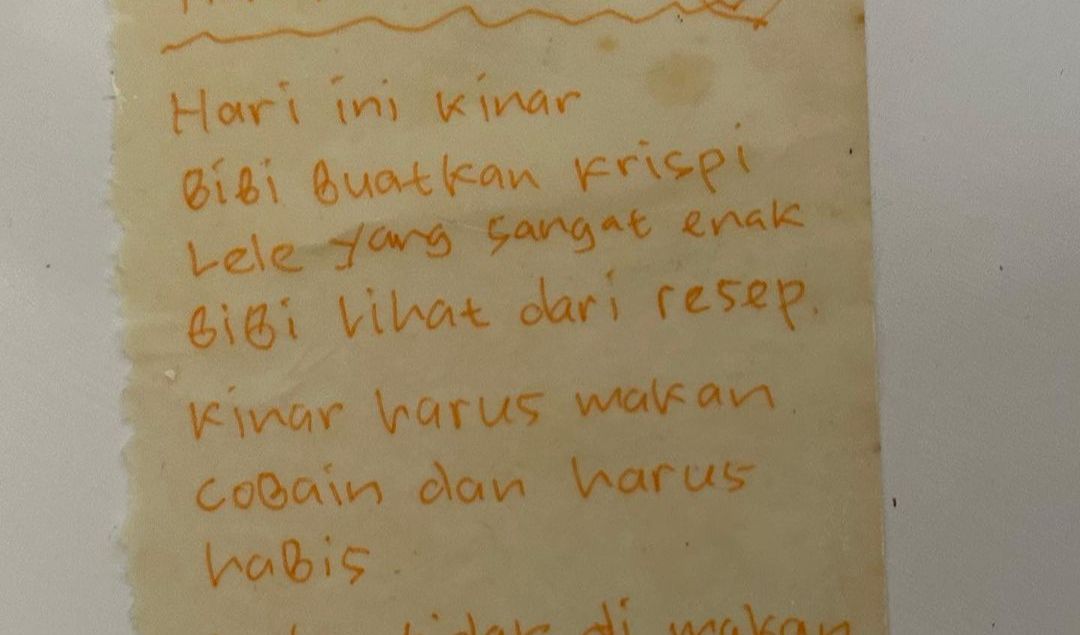 Hari ini kinar
BiBi Buatkan krispi
Lele yang sangat enak
BiBi Lihat dari resep.
Kinar harus makan
coBain dan harus
haBis
tidak di makan